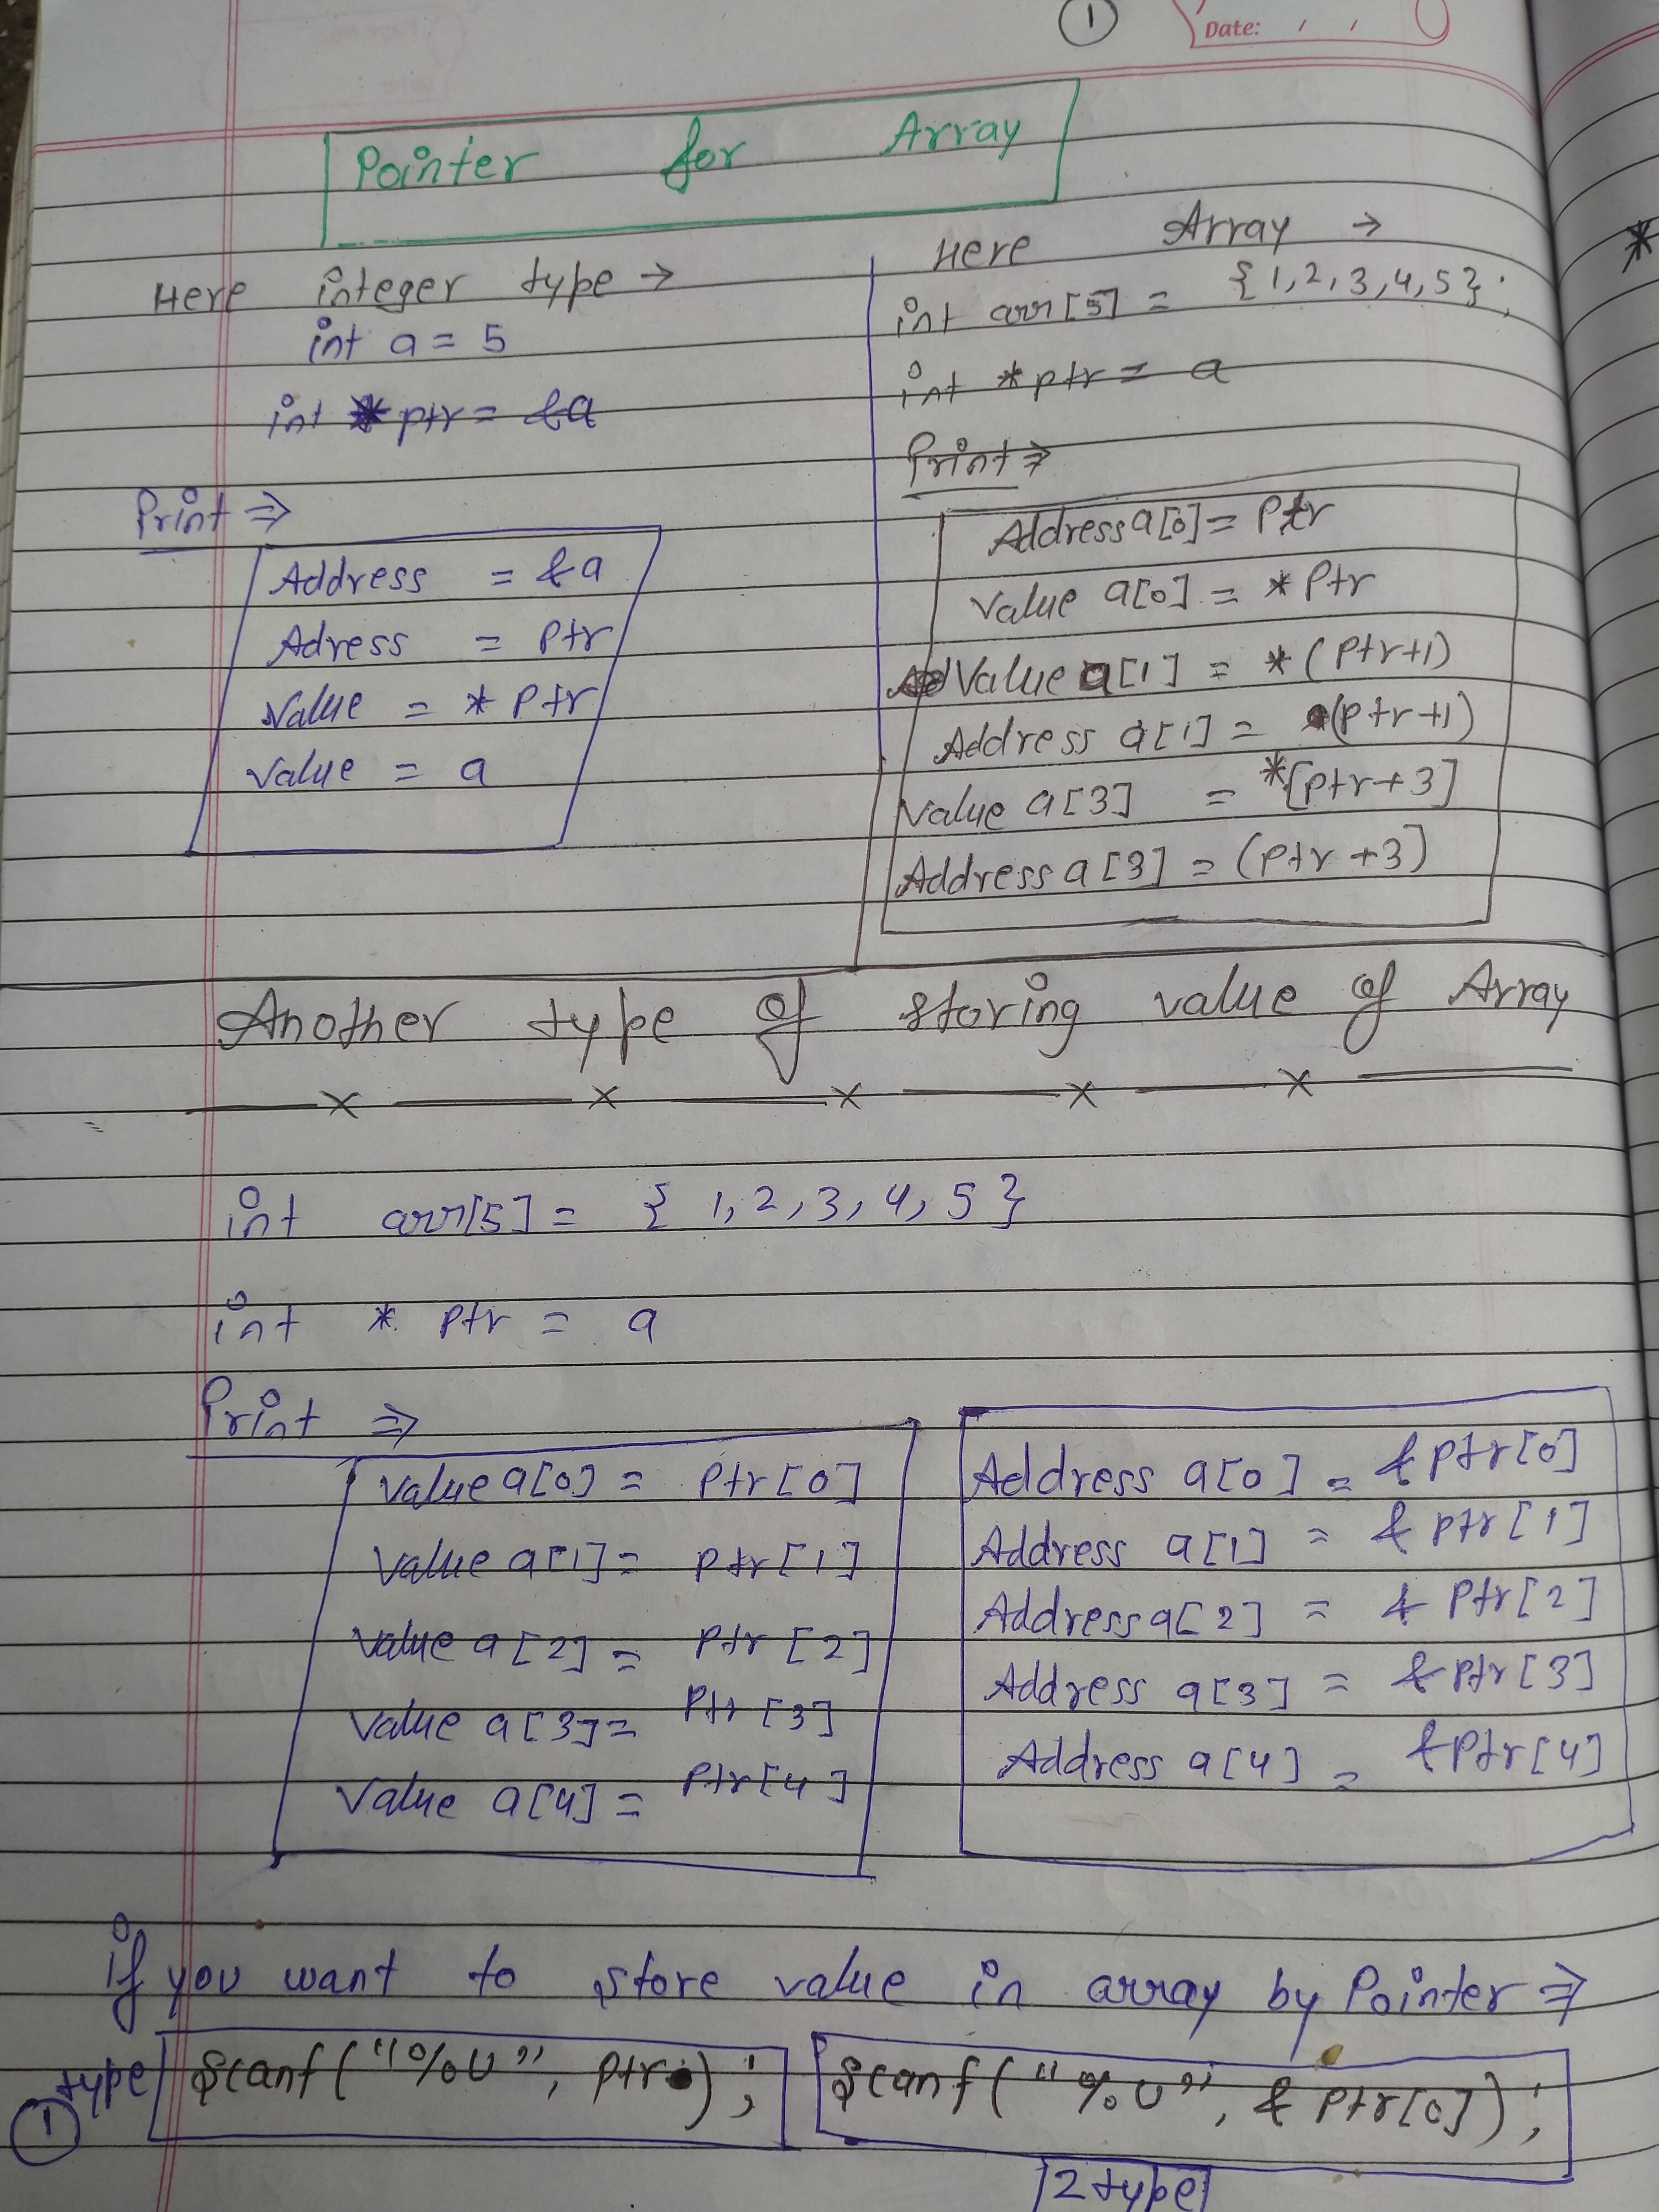 1
Date: / /
Pointer for Array
Here integer type →
int a = 5
int * ptr = &a
Print ⇒
Address = &a
Adress = Ptr
Value = * Ptr
Value = a
Here Array →
int arr[5] = {1,2,3,4,5};
int *ptr = a
Print ⇒
Address a[0] = Ptr
Value a[0] = * Ptr
Value a[1] = * (Ptr+1)
Address a[1] = (ptr+1)
Value a[3] = *[ptr+3]
Address a[3] = (ptr+3]
*
Another type of storing value of Array
int arr[5] = { 1,2,3,4,5 }
int * Ptr = a
Print ⇒
Value a[0] = Ptr[0]
Value a[1] = Ptr[1]
Value a[2] = Ptr[2]
Value a[3] = Ptr[3]
Value a[4] = Ptr[4]
Address a[0] = &Ptr[0]
Address a[1] = &Ptr[1]
Address a[2] = &Ptr[2]
Address a[3] = &Ptr[3]
Address a[4] = &Ptr[4]
if you want to store value in array by Pointer ⇒
type 1 Scanf("%U", Ptr); Scanf("%U", &Ptr[0]);
2 type